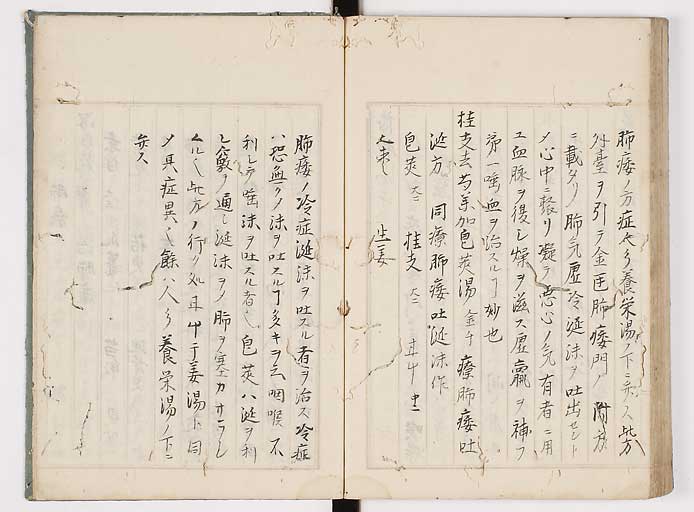 肺痿ノ方症也人参養栄湯ノ下ニ示ス此方
外臺ヲ引テ金匱肺痿門ノ附方
ニ載タリノ肺気虚冷涎沫ヲ吐出セント
〆心中ニ聚リ凝テ悪心ノ気有者ニ用
ユ血脉ヲ復し燥ヲ滋ス虚羸ヲ補フ
第一唾血ヲ治スルヿ妙也
桂支去芍薬加皀莢湯 金千 療肺痿吐
涎方 同療肺痿吐涎沫作
皀莢 大二 桂支 大二 甘中
大束 生姜
肺痿ノ冷症涎沫ヲ吐スル者ヲ治ス冷症
ハ恐無クノ沫ヲ吐スルヿ多キヲ云咽喉不
利シテ唾沫ヲ吐スル者也皀莢ハ涎ヲ利
し竅ヲ通し涎沫ヲノ肺ヲ塞カサラシ
ムル也此方ノ行ク処甘草干姜湯ト同
〆其症異ナル餘ハ人参養栄湯ノ下ニ
弁ス